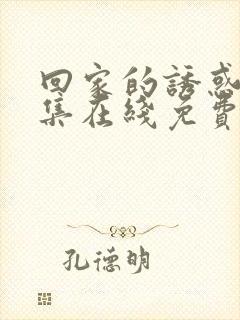 回家的誘惑
集在綫免費
孔德明